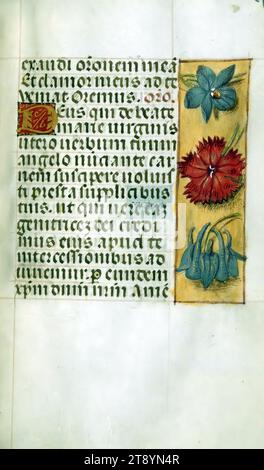 exaudi orōnem meā
Et clamor meus ad te
veniat Oremus. oro.
Deus qui de beate
marie virginis
utero verbum tuum
angelo nūciante car
nem suscipere voluisti
presta supplicibus
tuis. ut qui vere eam
genitricē dei credi
mus eius apud te
intercessionibus ad
iuvemur. p eundem
xpm dnm nrm Amē
alamy
Image ID: 2T8YN4R
www.alamy.com